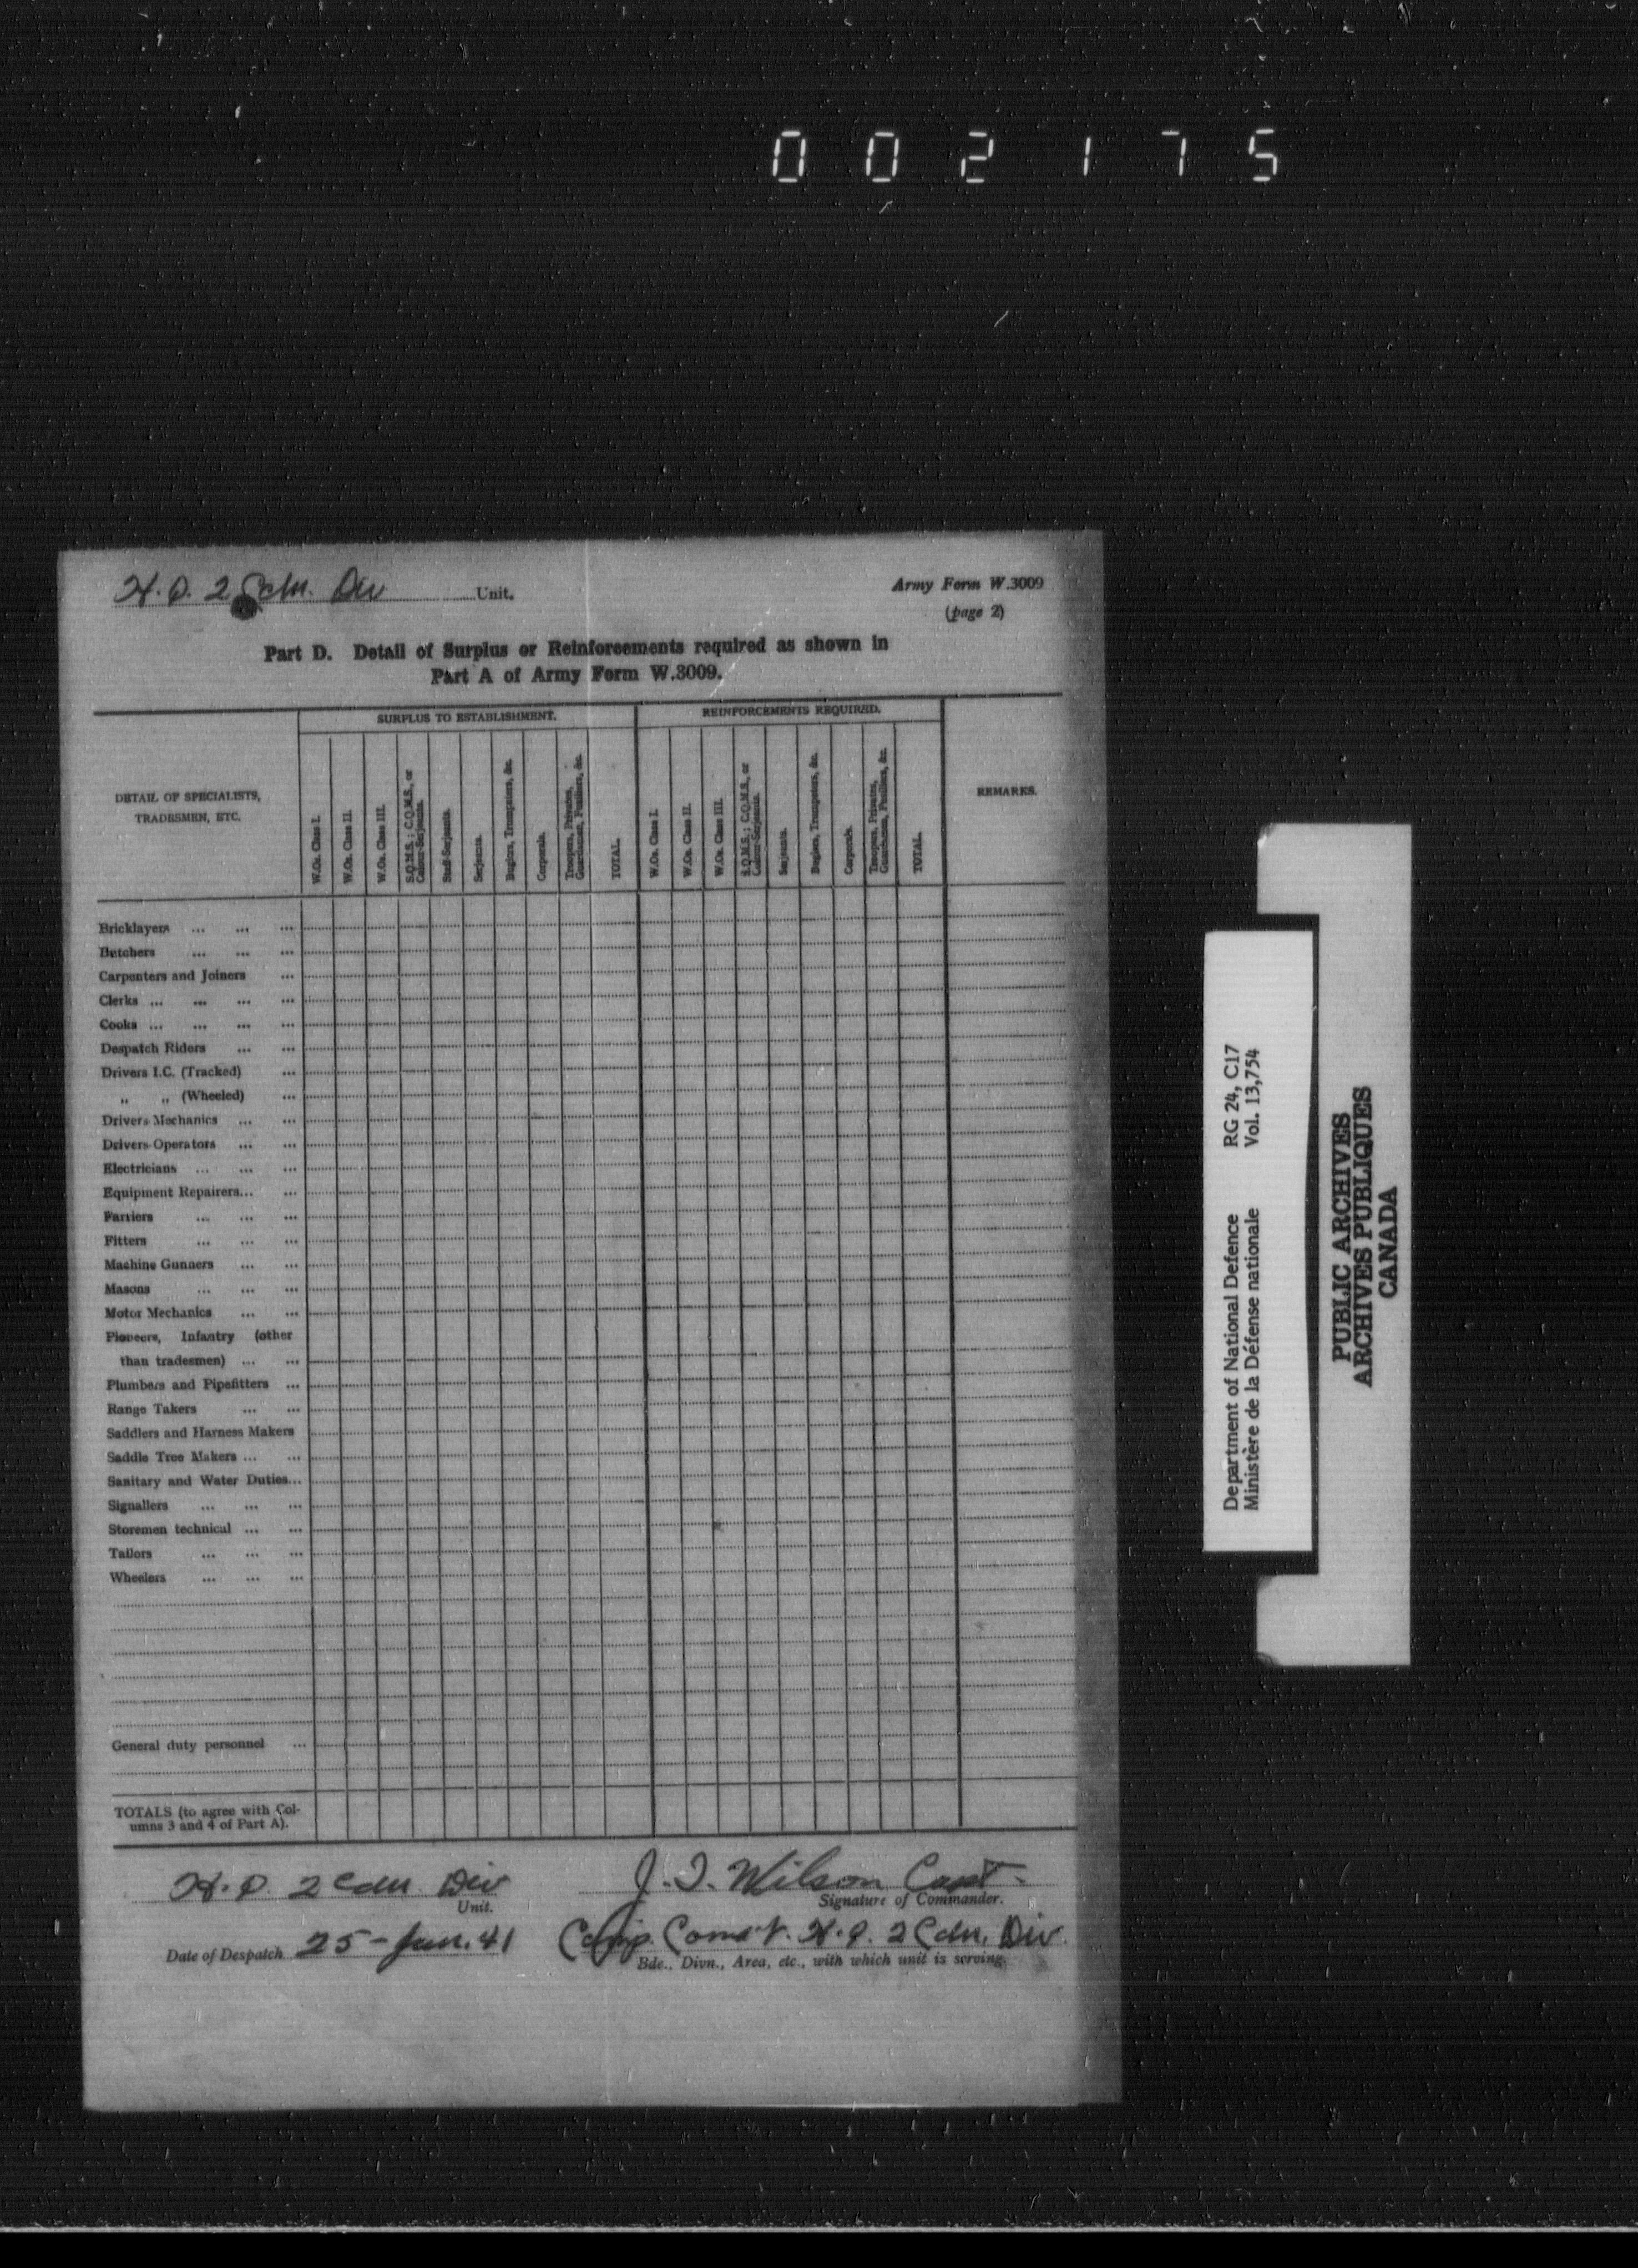 002175
H.Q. 2 Cdn. Div Unit.
Army Form W.3009
(page 2)
Part D. Detail of Surplus or Reinforcements required as shown in
Part A of Army Form W.3009.
DETAIL OF SPECIALISTS,
TRADESMEN, ETC.
SURPLUS TO ESTABLISHMENT.
W.Os. Class I.
W.Os. Class II.
W.Os. Class III.
S.Q.M.S.; C.Q.M.S., or
Colour-Serjeants.
Staff-Serjeants.
Serjeants.
Buglers, Trumpeters, &c.
Corporals.
Troopers, Privates,
Guardsmen, Fusiliers, &c.
TOTAL.
REINFORCEMENTS REQUIRED.
W.Os. Class I.
W.Os. Class II.
W.Os. Class III.
S.Q.M.S.; C.Q.M.S., or
Colour-Serjeants.
Serjeants.
Buglers, Trumpeters, &c.
Corporals.
Troopers, Privates,
Guardsmen, Fusiliers, &c.
TOTAL.
REMARKS.
Bricklayers ... ... ...
Butchers ... ... ...
Carpenters and Joiners ...
Clerks ... ... ... ...
Cooks ... ... ... ...
Despatch Riders ... ...
Drivers I.C. (Tracked) ...
„ „ (Wheeled) ...
Drivers-Mechanics ... ...
Drivers-Operators ... ...
Electricians ... ... ...
Equipment Repairers... ...
Farriers ... ... ...
Fitters ... ... ...
Machine Gunners ... ...
Masons ... ... ...
Motor Mechanics ... ...
Pioneers, Infantry (other
than tradesmen) ... ...
Plumbers and Pipefitters ...
Range Takers ... ...
Saddlers and Harness Makers
Saddle Tree Makers ... ...
Sanitary and Water Duties...
Signallers ... ... ...
Storemen technical ... ...
Tailors ... ... ...
Wheelers ... ... ...
General duty personnel ...
TOTALS (to agree with Col-
umns 3 and 4 of Part A).
H.Q. 2 Cdn. Div
Unit.
J. I. Wilson Capt.
Signature of Commander.
Date of Despatch 25-Jan. 41
Camp. Comd't. H.Q. 2 Cdn. Div.
Bde., Divn., Area, etc., with which unit is serving.
Department of National Defence RG 24, C17
Ministère de la Défense nationale Vol. 13,754
PUBLIC ARCHIVES
ARCHIVES PUBLIQUES
CANADA